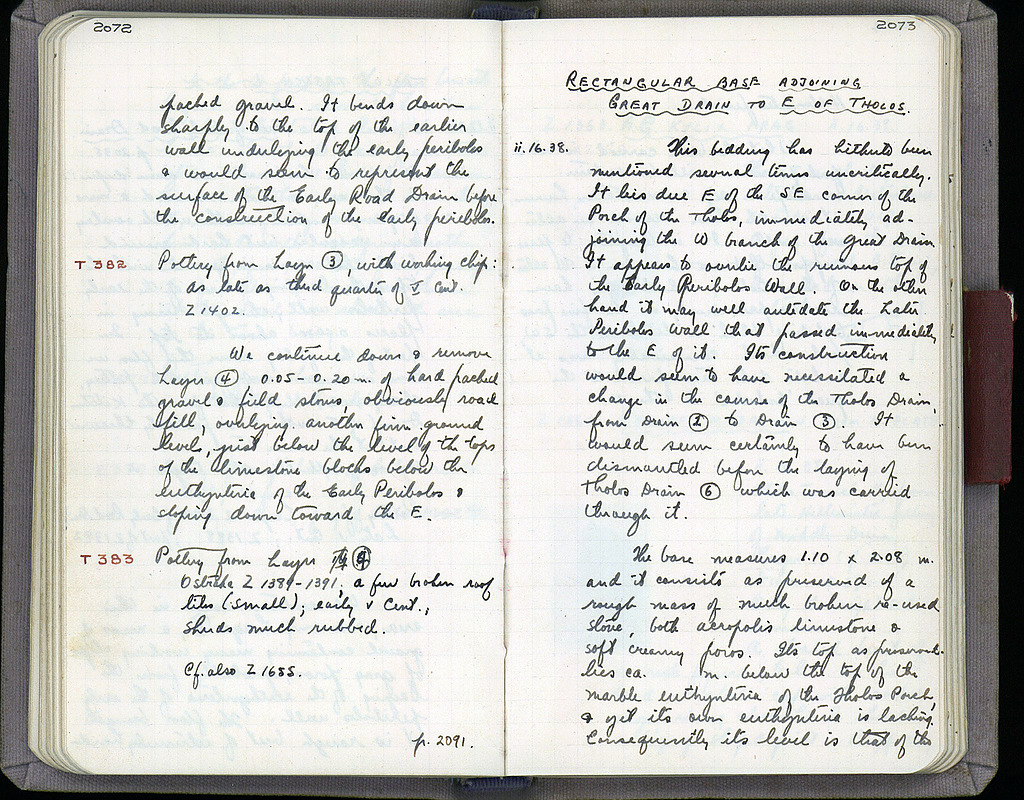 2072
packed gravel. It bends down
sharply to the top of the earlier
wall underlying the early peribolos
& would seem to represent the
surface of the Early Road Drain before
the construction of the early peribolos.
T 382 Pottery from Layer ③, with working chip:
as late as third quarter of V Cent.
Z 1402.
We continue down & remove
Layer ④ 0.05–0.20 m. of hard packed
gravel & field stones, obviously road
fill, overlying another firm ground
level, just below the level of the tops
of the limestone blocks below the
euthynteria of the Early Peribolos &
sloping down toward the E.
T 383 Pottery from Layer ④
Ostraka Z 1389–1391; a few broken roof
tiles (small); early V Cent.,
sherds much rubbed.
Cf. also Z 1685.
p. 2091.
2073
RECTANGULAR BASE ADJOINING
GREAT DRAIN TO E OF THOLOS.
ii.16.38. This bedding has hitherto been
mentioned several times uncritically.
It lies due E of the SE corner of the
Porch of the Tholos, immediately ad-
joining the W branch of the Great Drain.
It appears to overlie the ruinous top of
the Early Peribolos Wall. On the other
hand it may well antedate the Later
Peribolos Wall that passed immediately
to the E of it. Its construction
would seem to have necessitated a
change in the course of the Tholos Drain,
from Drain ② to Drain ③. It
would seem certainly to have been
dismantled before the laying of
Tholos Drain ⑥ which was carried
through it.
The base measures 1.10 x 2.08 m.
and it consists as preserved of a
rough mass of much broken re-used
stone, both acropolis limestone &
soft creamy poros. Its top as preserved
lies ca. m. below the top of the
marble euthynteria of the Tholos Porch,
& yet its own euthynteria is lacking.
Consequently its level is that of the